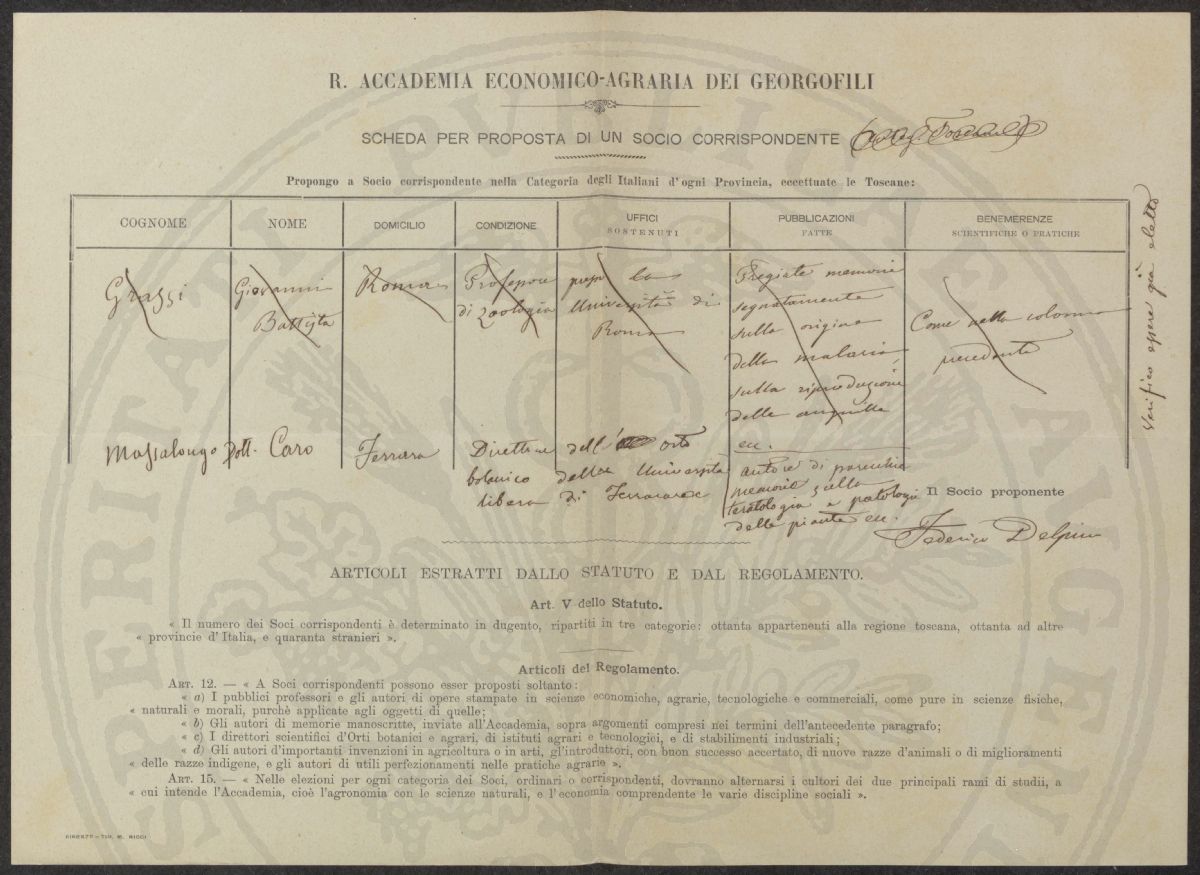 R. ACCADEMIA ECONOMICO-AGRARIA DEI GEORGOFILI
SCHEDA PER PROPOSTA DI UN SOCIO CORRISPONDENTE
Propongo a Socio corrispondente nella Categoria degli Italiani d'ogni Provincia, eccettuate le Toscane:
COGNOME
NOME
DOMICILIO
CONDIZIONE
UFFICI
SOSTENUTI
PUBBLICAZIONI
FATTE
BENEMERENZE
SCIENTIFICHE O PRATICHE
Grassi
Giovanni
Battista
Roma
Professore
di Zoologia
presso la
Università di
Roma
Pregiate memorie
segnatamente
sulla origine
della malaria,
sulla riproduzione
delle anguille
ecc.
Come nella colonna
precedente
Verifico essere già eletto
Massalongo Dott. Caro
Ferrara
Direttore dell' Orto
botanico della Università
libera di Ferrara
autore di parecchie
memorie sulla
teratologia e patologia
delle piante ecc.
Il Socio proponente
Federico Delpino
ARTICOLI ESTRATTI DALLO STATUTO E DAL REGOLAMENTO.
Art. V dello Statuto.
« Il numero dei Soci corrispondenti è determinato in dugento, ripartiti in tre categorie: ottanta appartenenti alla regione toscana, ottanta ad altre
« provincie d'Italia, e quaranta stranieri ».
Articoli del Regolamento.
ART. 12. — « A Soci corrispondenti possono esser proposti soltanto:
« a) I pubblici professori e gli autori di opere stampate in scienze economiche, agrarie, tecnologiche e commerciali, come pure in scienze fisiche,
« naturali e morali, purchè applicate agli oggetti di quelle;
« b) Gli autori di memorie manoscritte, inviate all'Accademia, sopra argomenti compresi nei termini dell'antecedente paragrafo;
« c) I direttori scientifici d'Orti botanici e agrari, di istituti agrari e tecnologici, e di stabilimenti industriali;
« d) Gli autori d'importanti invenzioni in agricoltura o in arti, gl'introduttori, con buon successo accertato, di nuove razze d'animali o di miglioramenti
« delle razze indigene, e gli autori di utili perfezionamenti nelle pratiche agrarie ».
ART. 15. — « Nelle elezioni per ogni categoria dei Soci, ordinari o corrispondenti, dovranno alternarsi i cultori dei due principali rami di studii, a
« cui intende l'Accademia, cioè l'agronomia con le scienze naturali, e l'economia comprendente le varie discipline sociali ».
FIRENZE - TIP. M. RICCI